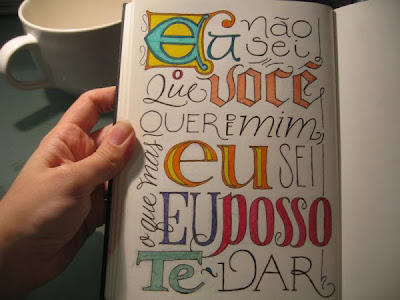 Eu não sei
o Que você
QUER DE mim,
mas eu SEI
o que EU posso
Te DAR!